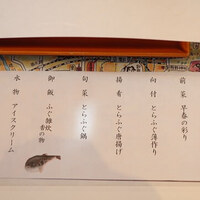 前菜 早春の彩り
向付 とらふぐ薄作り
揚肴 とらふぐ唐揚げ
旬菜 とらふぐ鍋
御飯 ふぐ雑炊
香の物
水物 アイスクリーム